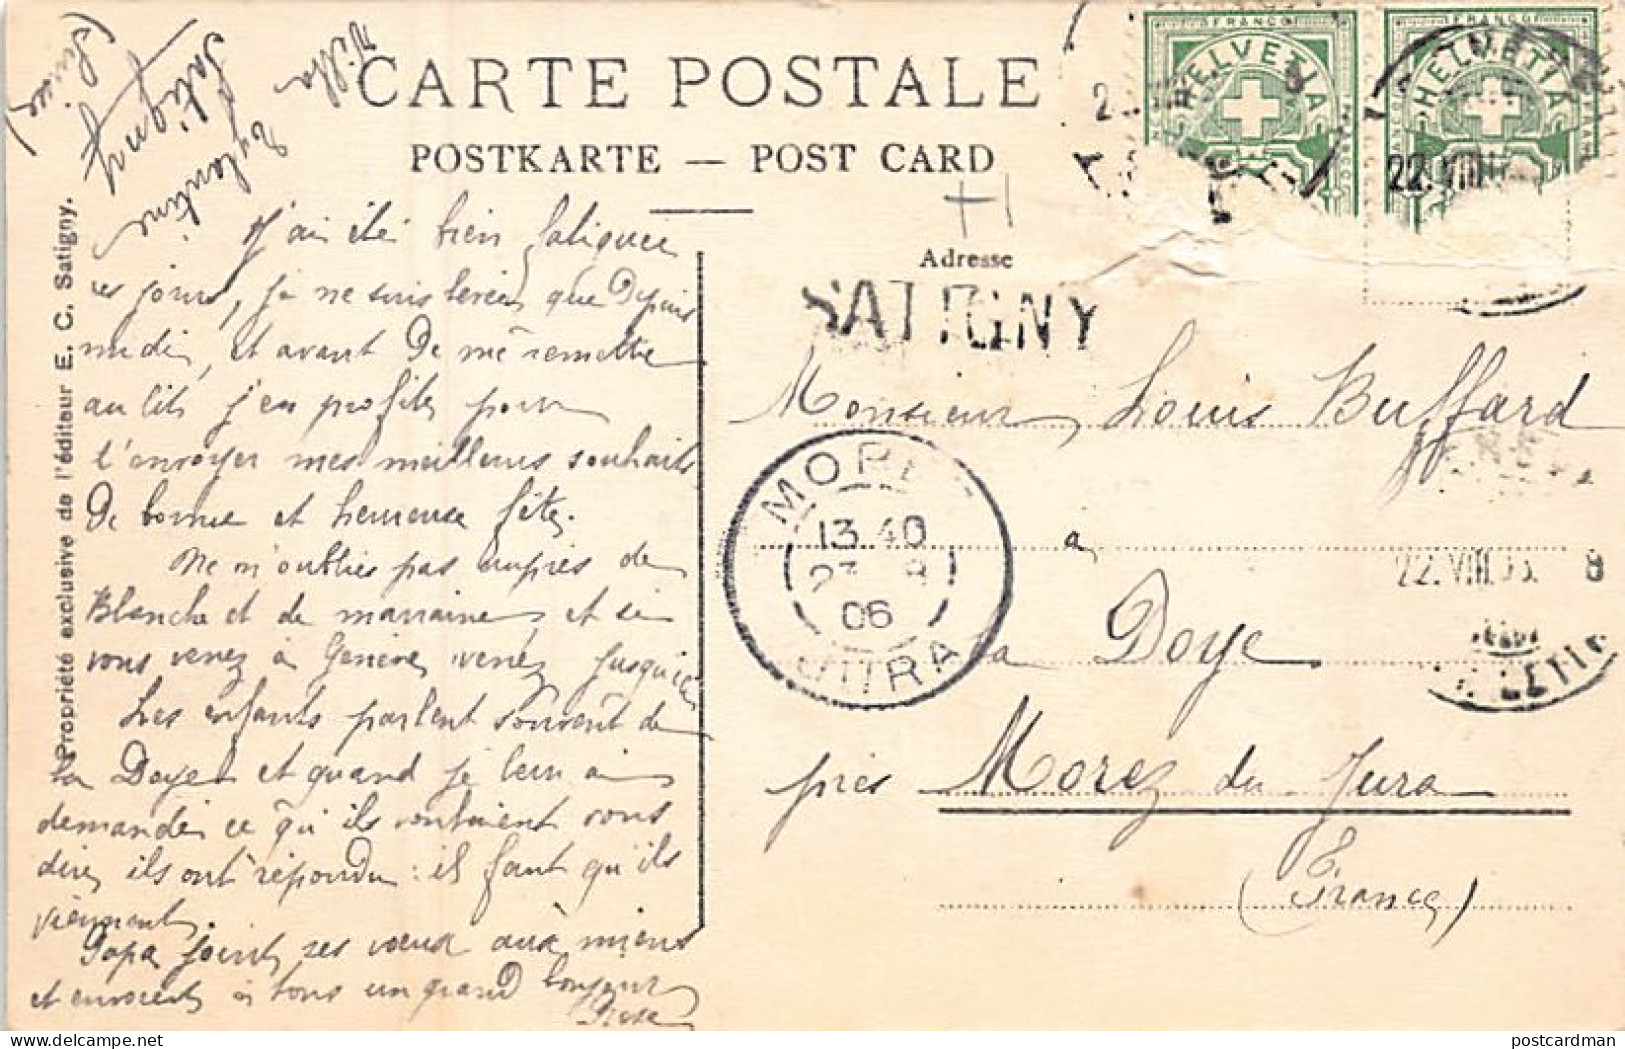 CARTE POSTALE
POSTKARTE — POST CARD
Villa
Eglantine
Satigny
(Suisse)
Propriété exclusive de l'éditeur E. C. Satigny.
J'ai été bien fatiguée
ces jours, je ne suis levée que Depuis
midi, et avant De me remettre
au lit j'en profite pour
t'envoyer mes meilleurs souhaits
De bonne et heureuse fête.
Ne m'oubliez pas auprès de
Blanche et de marraine, et si
vous venez à Genève, venez jusqu'ici
Les enfants parlent souvent de
la Doye et quand je leur ai
demandé ce qu'ils voulaient vous
dire, ils ont répondu : il faut qu'ils
viennent.
Papa joint ses vœux aux miens
et envoient à tous un grand bonjour
FRANCO
HELVETIA
FRANCO
HELVETIA
22.VIII
Adresse
SATIGNY
Monsieur Louis Buffard
à
la Doye
près Morez du Jura
(France)
MOREZ
13 40
23 8
06
JURA
22.VIII.06. 8
postcardman